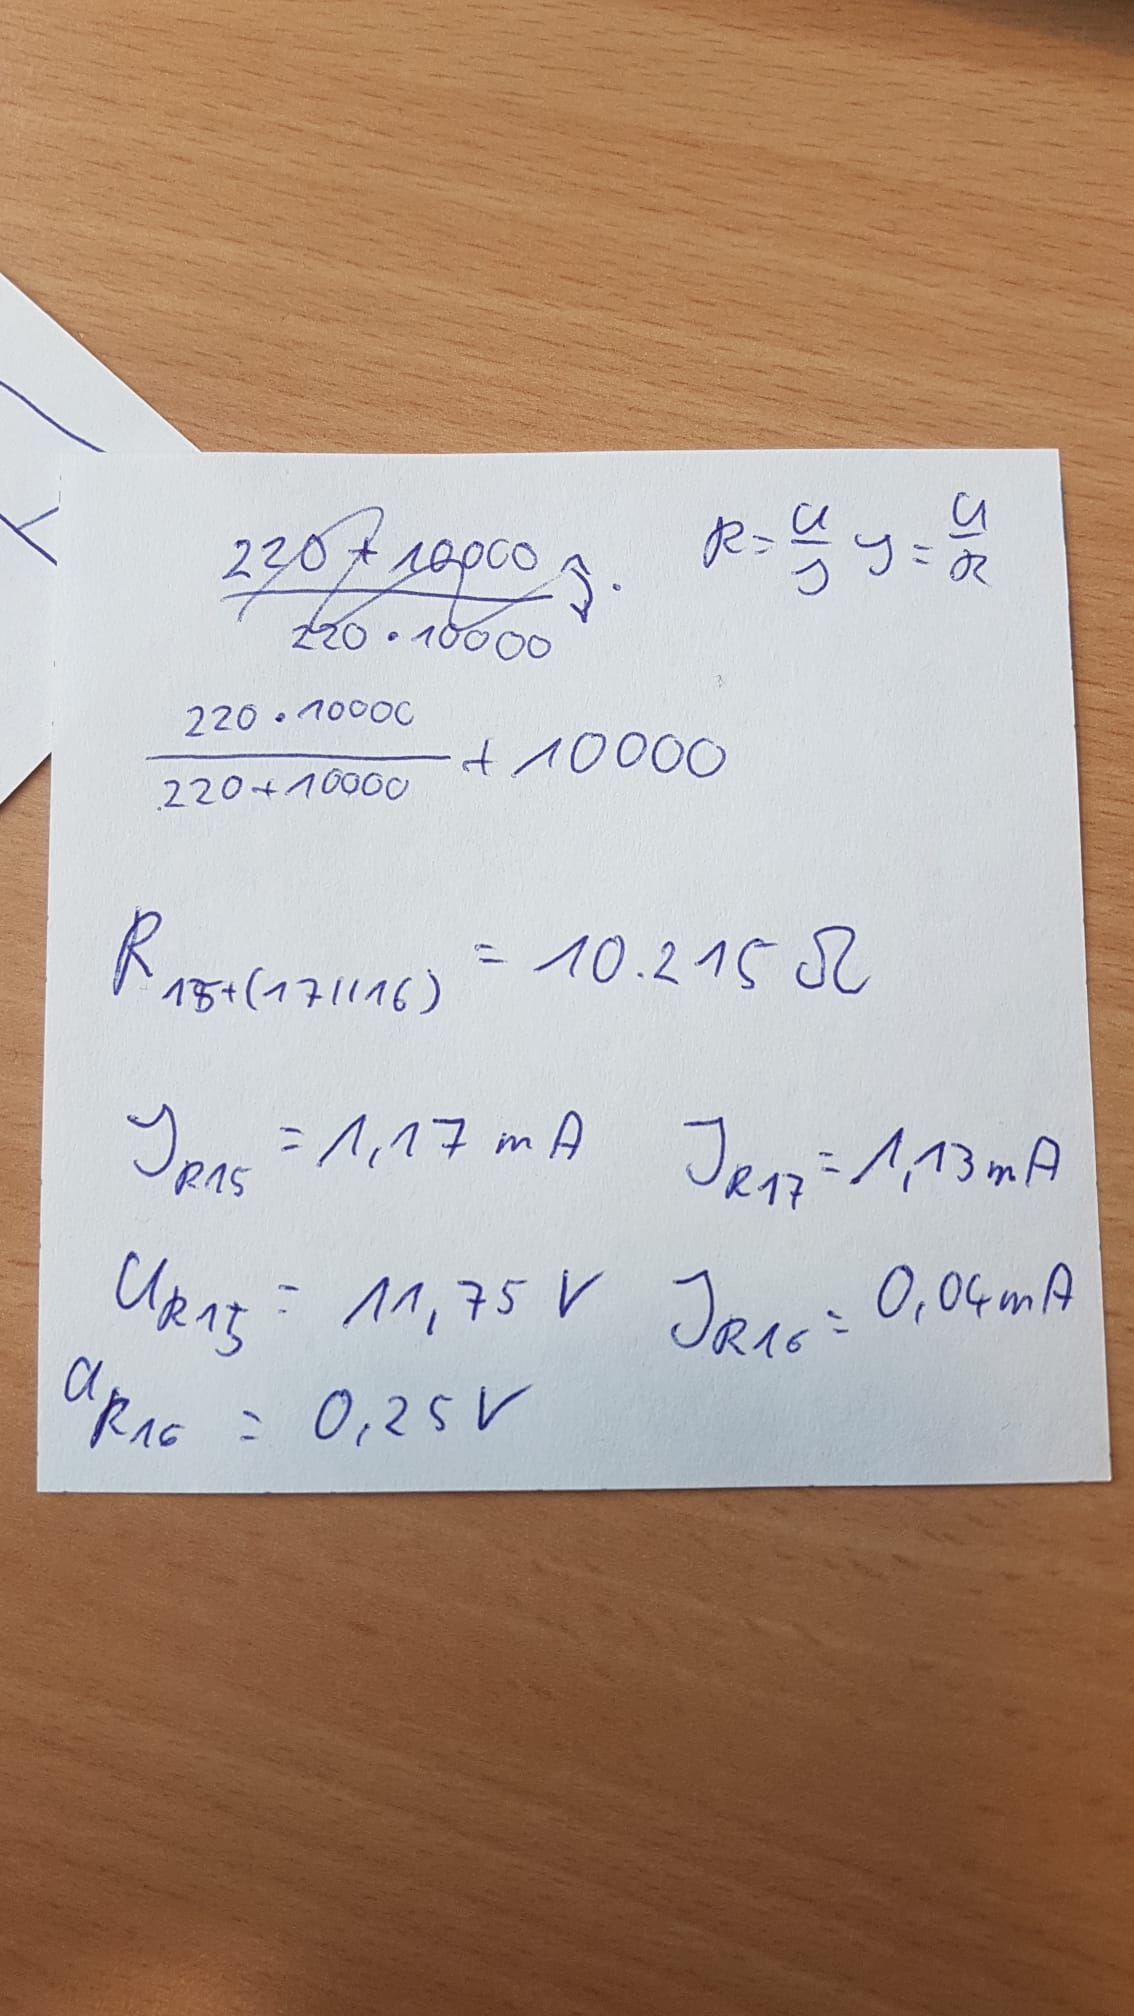 220 + 10000
220 · 10000
R = U/J J = U/R
220 · 10000
220 + 10000
+ 10000
R15+(17||16) = 10.215 Ω
JR15 = 1,17 mA JR17 = 1,13 mA
UR15 = 11,75 V JR16 = 0,04 mA
UR16 = 0,25 V